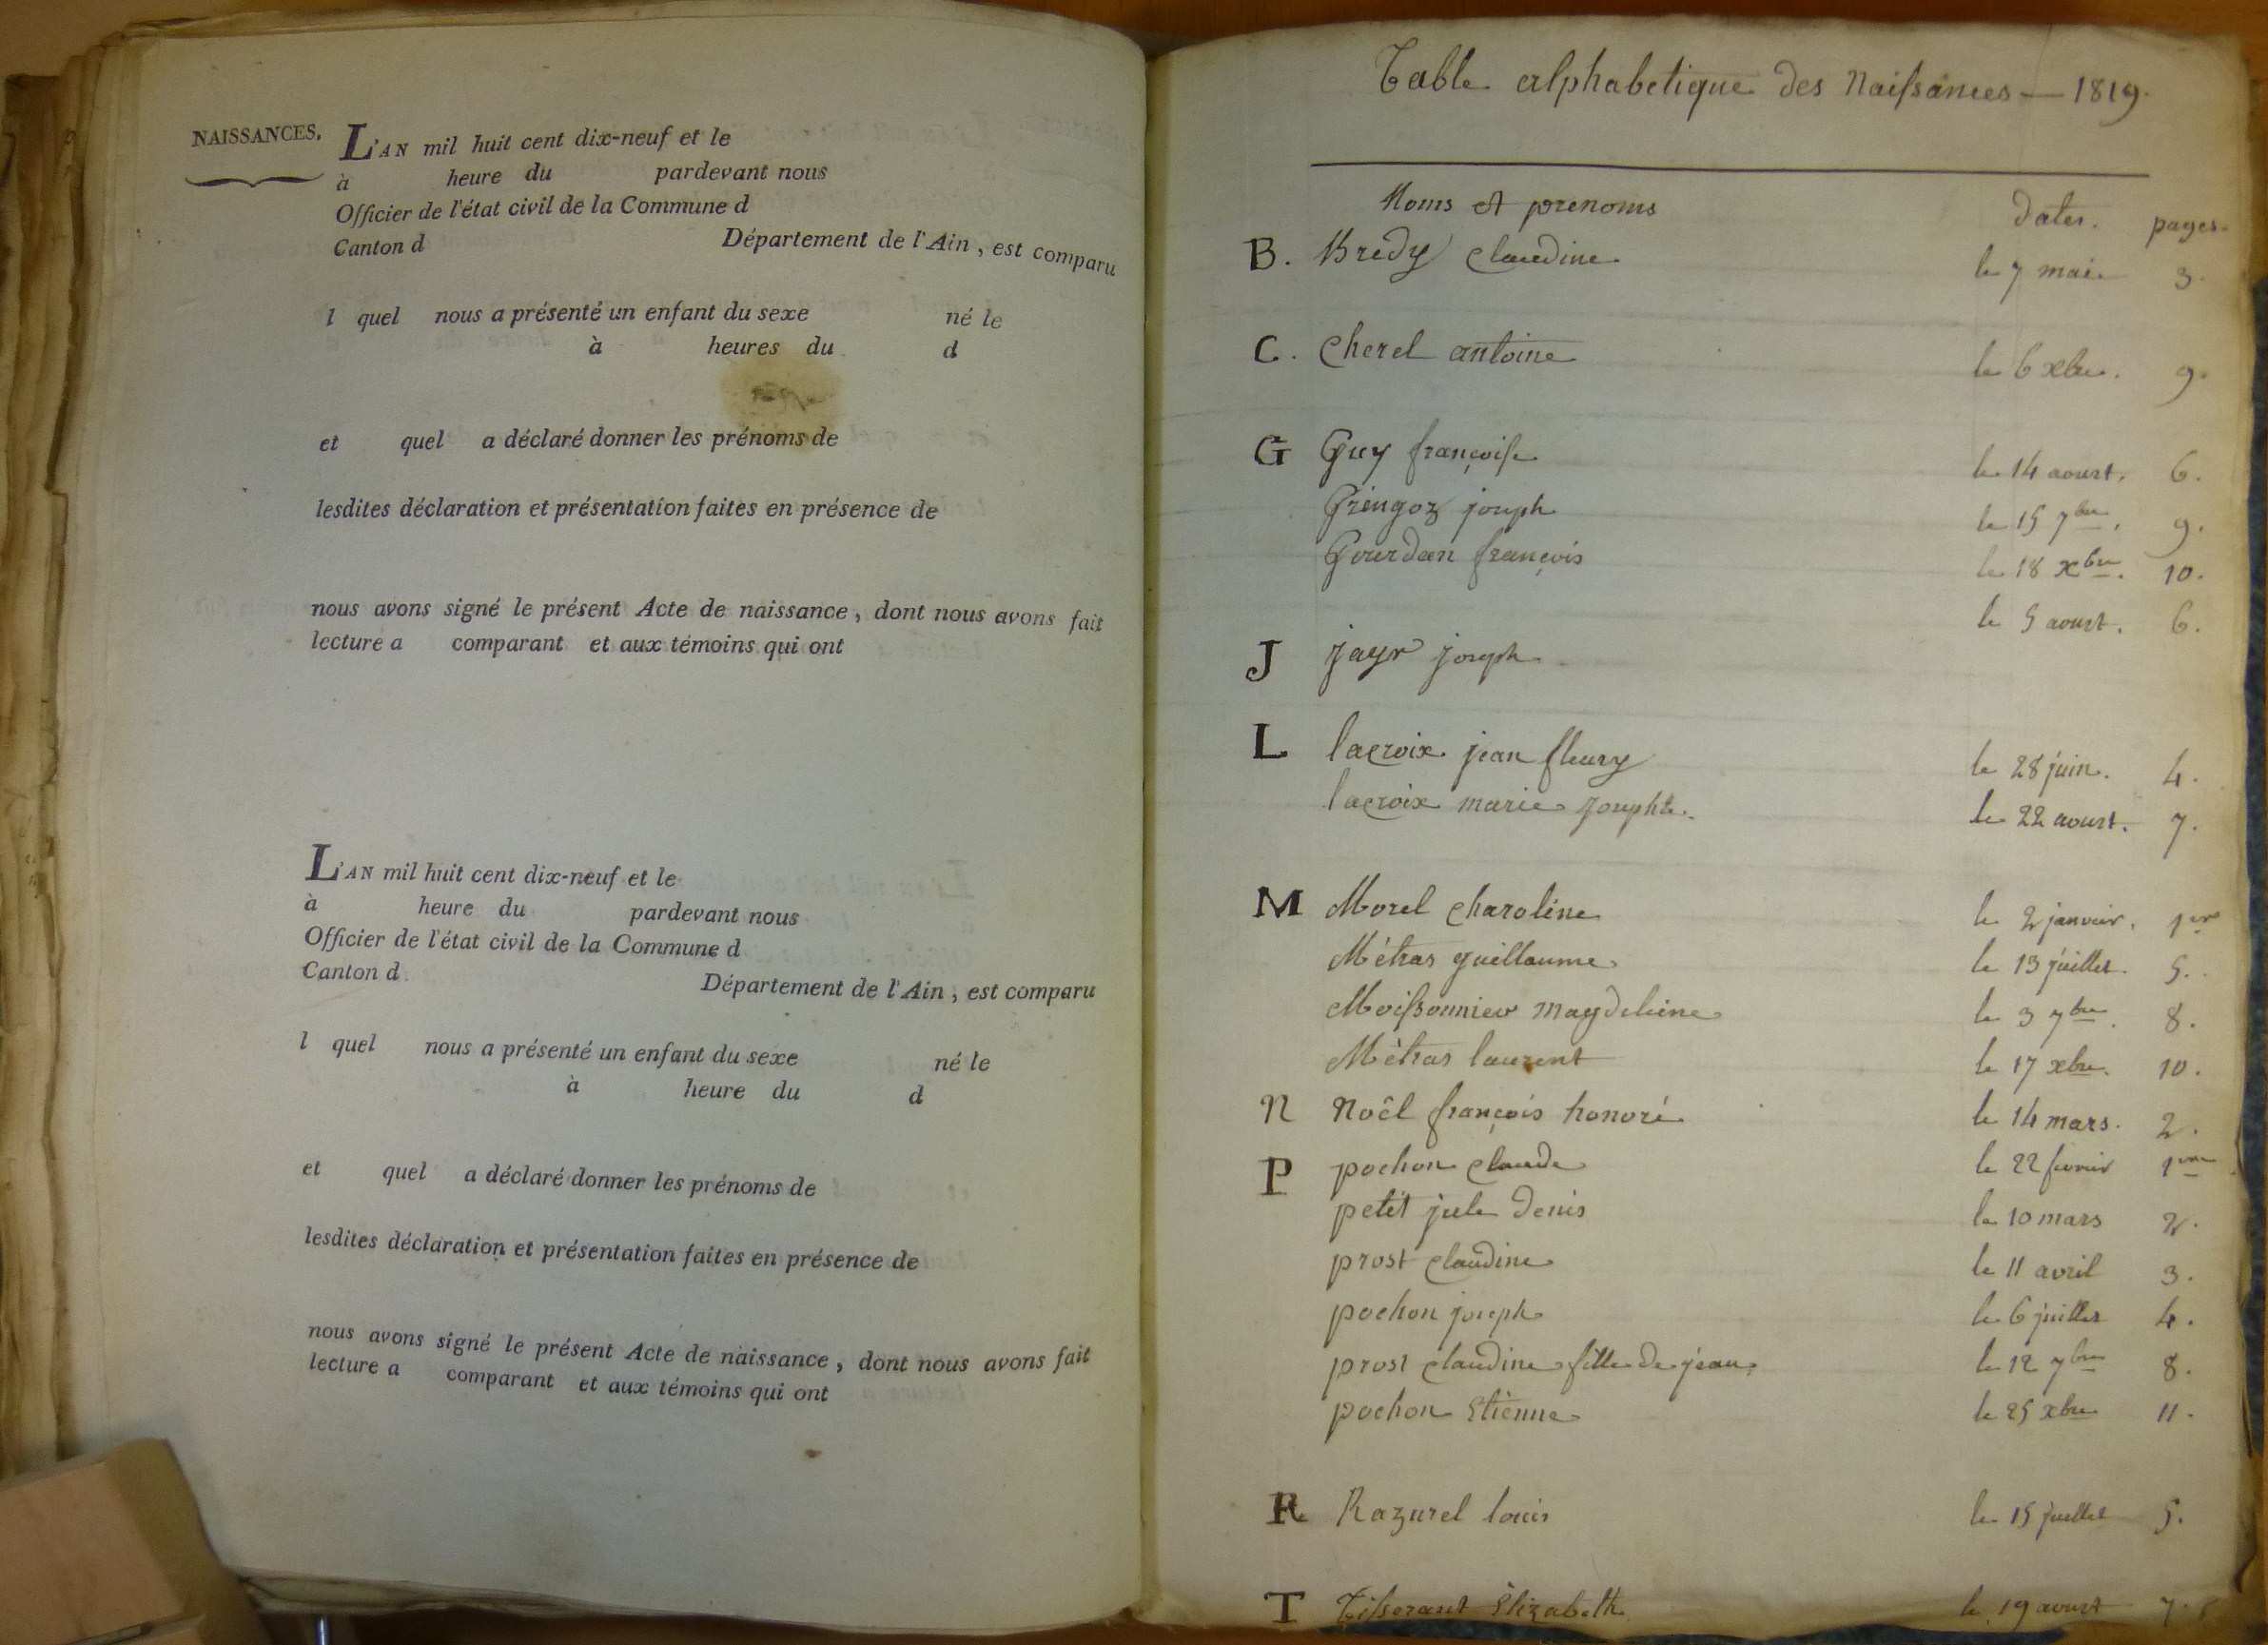 NAISSANCES.
L'AN mil huit cent dix-neuf et le
à heure du pardevant nous
Officier de l'état civil de la Commune d
Canton d Département de l'Ain, est comparu
l quel nous a présenté un enfant du sexe né le
à heures du d
et quel a déclaré donner les prénoms de
lesdites déclaration et présentation faites en présence de
nous avons signé le présent Acte de naissance, dont nous avons fait
lecture a comparant et aux témoins qui ont
L'AN mil huit cent dix-neuf et le
à heure du pardevant nous
Officier de l'état civil de la Commune d
Canton d Département de l'Ain, est comparu
l quel nous a présenté un enfant du sexe né le
à heure du d
et quel a déclaré donner les prénoms de
lesdites déclaration et présentation faites en présence de
nous avons signé le présent Acte de naissance, dont nous avons fait
lecture a comparant et aux témoins qui ont
Table alphabetique des Naissances — 1819.
Noms et prenoms dates. pages.
B. Bredy claudine le 7 mai. 3.
C. Cherel antoine le 6 xbre. 9.
G Guy françoise le 14 aoust. 6.
Gringoz joseph le 15 7bre. 9.
Gourdan françois le 18 xbre. 10.
J jayr joseph le 5 aoust. 6.
L lacroix jean fleury le 28 juin. 4.
lacroix marie josephte. le 22 aoust. 7.
M Morel charoline le 2 janvier. 1er
Métras guillaume le 13 juillet. 5.
Moissonnier magdeleine le 3 7bre. 8.
Métras laurent le 17 xbre. 10.
N Noël françois honoré le 14 mars. 2.
P pochon claude le 22 fevrier 1ere
petit jule denis le 10 mars 2.
prost claudine le 11 avril 3.
pochon joseph le 6 juillet 4.
prost claudine fille de jean. le 12 7bre 8.
pochon Etienne le 25 xbre 11.
R Razurel louis le 15 juillet 5.
T Tisserant Elizabeth le 19 aoust 7.